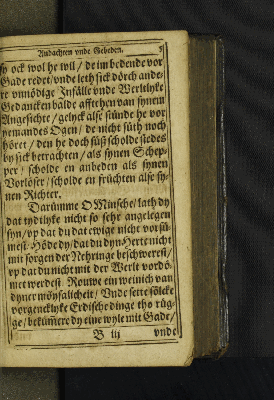 Andachten vnde Gebeden.
sy ock wol he wil / de im bedende vor
Gade redet / vnde leth sick dörch ande-
re vnnödige Infälle vnde Werltlyke
Gedancken balde affthen van synem
Angesichte / gelyck alse stünde he vor
nemandes Ogen / de nicht süth noch
höret / den he doch süß scholde stedes
by sick betrachten / als synen Schep-
per / scholde en anbeden als synen
Vorlöser / scholde en früchten alse sy-
nen Richter.
Darümme O Minsche / lath dy
dat tydtlyke nicht so sehr angelegen
syn / vp dat du dat ewige nicht vorsü-
mest: Höde dy / dat du dyn Herte nicht
mit sorgen der Nehringe beschwerest /
vp dat du nicht mit der Werlt vordö-
met werdest. Rouwe ein weinich van
dyner möysalicheit / Vnde sette sölcke
vorgencklyke Erdische dinge tho rüg-
ge / bekümere dy eine wyle mit Gade /
B iij vnde